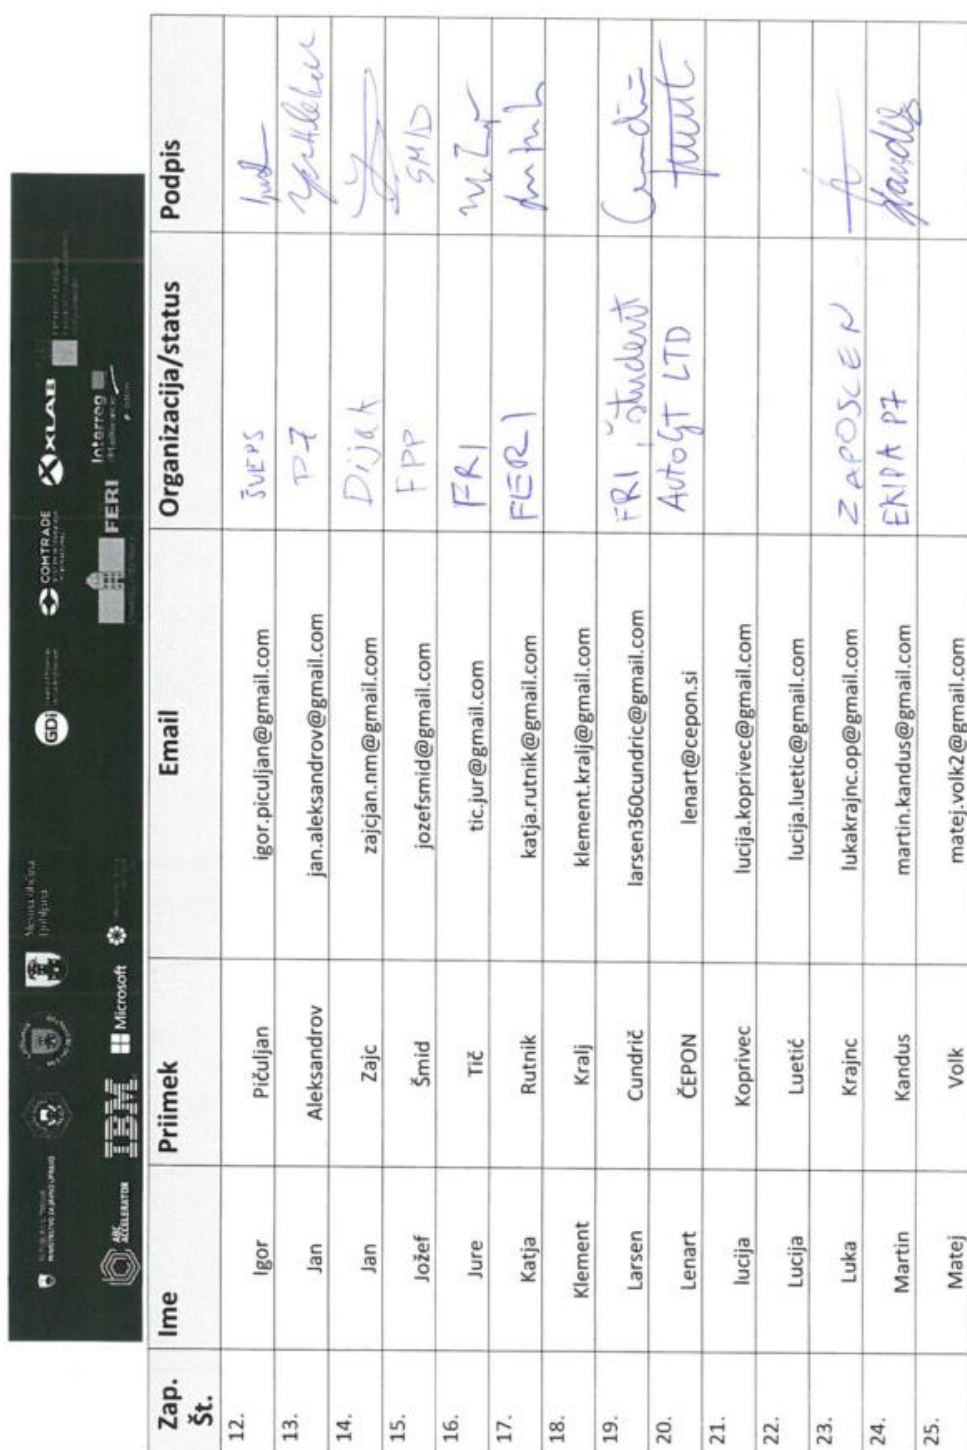 REPUBLIKA SLOVENIJA
MINISTRSTVO ZA JAVNO UPRAVO
Mestna občina
Ljubljana
GDi
COMTRADE
XLAB
ABC
ACCELERATOR
IBM
Microsoft
FERI
Interreg
Zap. Št. Ime Priimek Email Organizacija/status Podpis
12. Igor Pičuljan igor.piculjan@gmail.com ŠVEPS
13. Jan Aleksandrov jan.aleksandrov@gmail.com P7
14. Jan Zajc zajcjan.nm@gmail.com Dijak
15. Jožef Šmid jozefsmid@gmail.com FPP ŠMID
16. Jure Tič tic.jur@gmail.com FRI
17. Katja Rutnik katja.rutnik@gmail.com FERI
18. Klement Kralj klement.kralj@gmail.com
19. Larsen Cundrič larsen360cundric@gmail.com FRI, študent
20. Lenart ČEPON lenart@cepon.si AutoGT LTD
21. lucija Koprivec lucija.koprivec@gmail.com
22. Lucija Luetić lucija.luetic@gmail.com
23. Luka Krajnc lukakrajnc.op@gmail.com ZAPOSLEN
24. Martin Kandus martin.kandus@gmail.com EKIPA P7 Kandus
25. Matej Volk matej.volk2@gmail.com